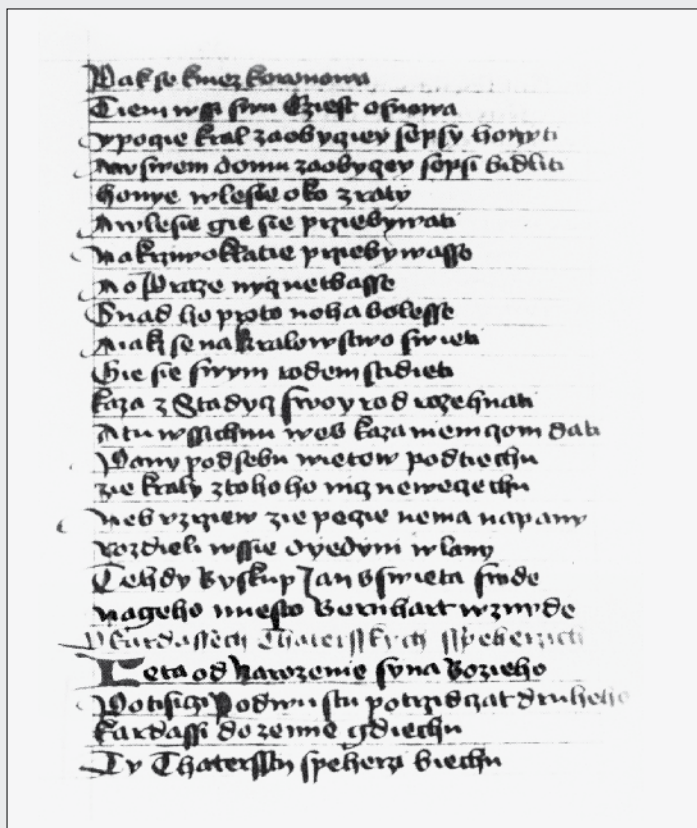 Pak se kniez korunowa
Tiem wssi swu Cziest osnowa
ypogie kral zaobyczey sepsy honyti
Aw swem domu zaobyczey sepsi bidliti
honye wlesie oko ztraty
Awlesie gie sie prziebywati
Nakrziwoklatie prziebywasse
Ao Praze nycz netbasse
Snad ho proto noha bolesse
Aiakz se nakralowstwo swieti
Gie sie swym rodem stidieti
kaza z Stadycz swoy rod rozehnati
Atu wssichnu wes kaza niemczom dati
Pany podsebu podtiechu
zie kraly ztoho nicz
Neb vzrziew zie pogie nema napany
rozdieli wssie dyedyni wlany
Tehdy Byskup Jan sswieta snide
nageho miesto Bernhart wzwyde
kardassech Thaterskych sspeherzich
Leta od Narozenie syna Bozieho
Potisiczi Podwustu potrzidczat druheho
kardassi dozemie gdiechu
Ty Thatersstii speherzi biechu